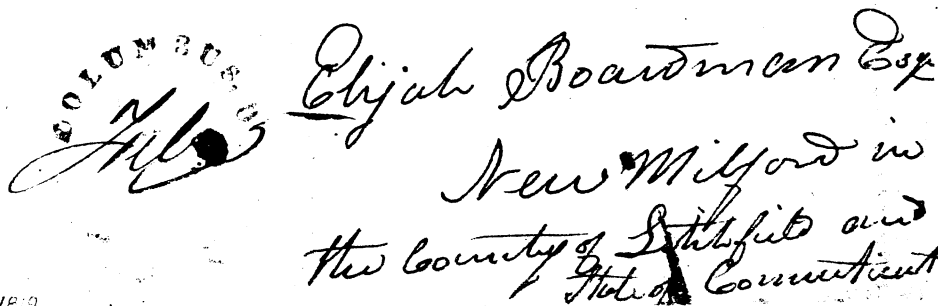 COLUMBUS. O
Feb
Elijah Boardman Esqr
New Milford in
the County of Litchfield and
State of Connecticut